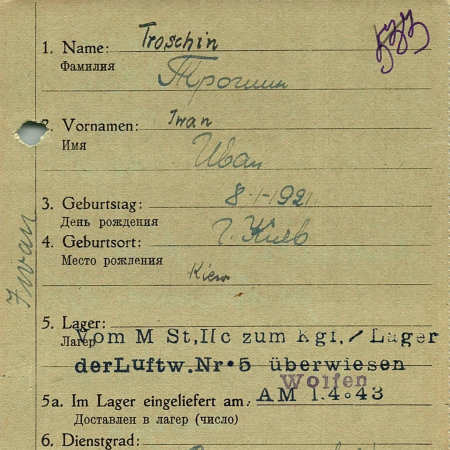 1. Name: Troschin
Фамилия Трошин
2. Vornamen: Iwan
Имя Иван
3. Geburtstag: 8-I-1921.
День рождения
4. Geburtsort: г. Киев
Место рождения
Kiew
Iwan
5. Lager: Vom M St,IIc zum Kgf./Lager
Лагерь
der Luftw.Nr•5 überwiesen
Wolfen
5a. Im Lager eingeliefert am: AM 1.4.43
Доставлен в лагер (число)
6. Dienstgrad: